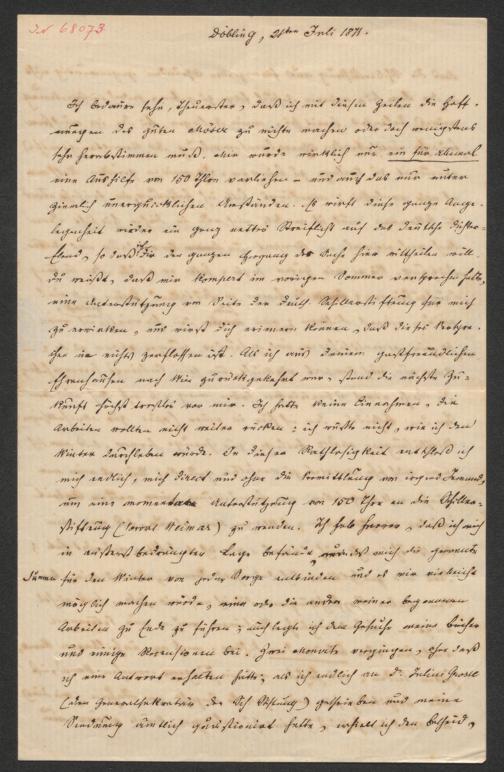 IN 68073
Döbling, 21ten Juli 1871.
Ich bedaure sehr, Theuerster, daß ich mit diesen Zeilen die Hoff-
nungen des guten zu nichte machen oder doch wenigstens
sehr herabstimmen muß. Mir wurde wirklich nur ein für allemal
eine Aushilfe von 150 Thlrn verliehen – und auch das nur unter
ziemlich unerquicklichen Umständen. Es wirft diese ganze Ange-
legenheit wieder ein ganz nettes Streiflicht auf das deutsche Dichter-
Elend, so daß ich Dir den ganzen Hergang der Sache hier mittheilen will.
Du weißt, daß mir Kompert im vorigen Sommer versprochen hatte,
eine Unterstützung von Seite der deutsch. Schillerstiftung für mich
zu erwirken, und wirst Dich erinnern können, daß dieses Verspre-
chen in nichts zerflossen ist. Als ich aus Deinem gastfreundlichen
Ehrenhausen nach Wien zurückgekehrt war, stand die nächste Zu-
kunft höchst trostlos vor mir. Ich hatte keine Einnahmen, die
Arbeiten wollten nicht weiter rücken; ich wußte nicht, wie ich den
Winter durchleben würde. In dieser Rathlosigkeit entschloß ich
mich endlich, mich direct und ohne die Vermittlung von irgend Jemand,
um eine momentane Unterstützung von 150 Thlr an die Schiller-
stiftung (Vorort Weimar) zu wenden. Ich hob hervor, daß ich mich
in äußerst bedrängter Lage befände, und daß mich die genannte
Summe für den Winter von jeder Sorge entbinden und es mir vielleicht
möglich machen würde, eine oder die andere meiner begonnenen
Arbeiten zu Ende zu führen; auch legte ich dem Gesuche meine Bücher
und einige Recensionen bei. Zwei Monate vergingen, ohne daß
ich eine Antwort erhalten hätte; als ich endlich an Dr. Julius Grosse
(den Generalsekretär der Sch Stiftung) geschrieben und meine
Sendung ämtlich hatte, erhielt ich den Bescheid,